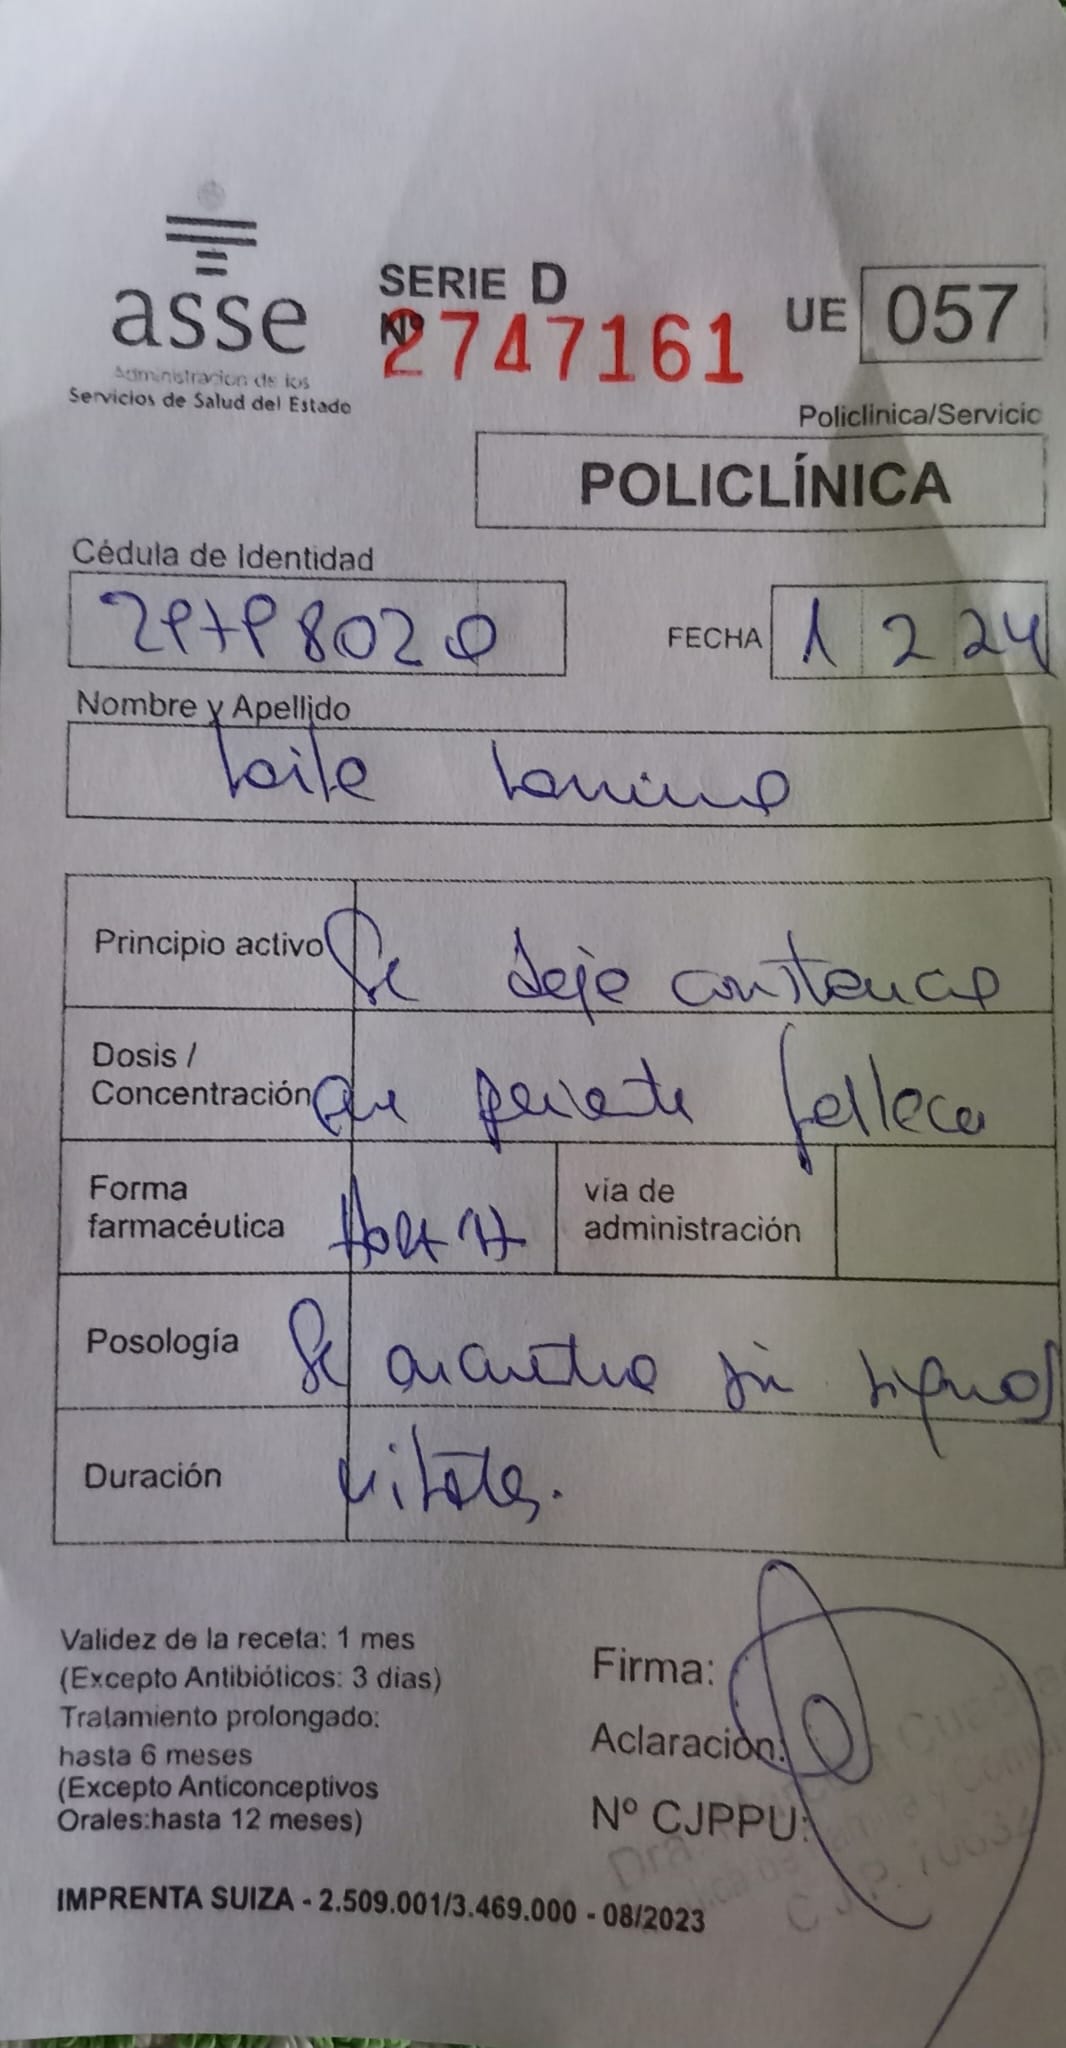 asse
Administración de los
Servicios de Salud del Estado
SERIE D
Nº 2747161
UE 057
Policlinica/Servicio
POLICLÍNICA
Cédula de Identidad
FECHA 1 2 24
Nombre y Apellido
Principio activo Se deja constancia
Dosis / Concentración que paciente fallece
Forma farmacéutica
vía de administración
Posología Se encuentra sin signos
Duración vitales.
Validez de la receta: 1 mes
(Excepto Antibióticos: 3 días)
Tratamiento prolongado:
hasta 6 meses
(Excepto Anticonceptivos
Orales:hasta 12 meses)
Firma:
Aclaración:
Nº CJPPU:
Dra.
IMPRENTA SUIZA - 2.509.001/3.469.000 - 08/2023